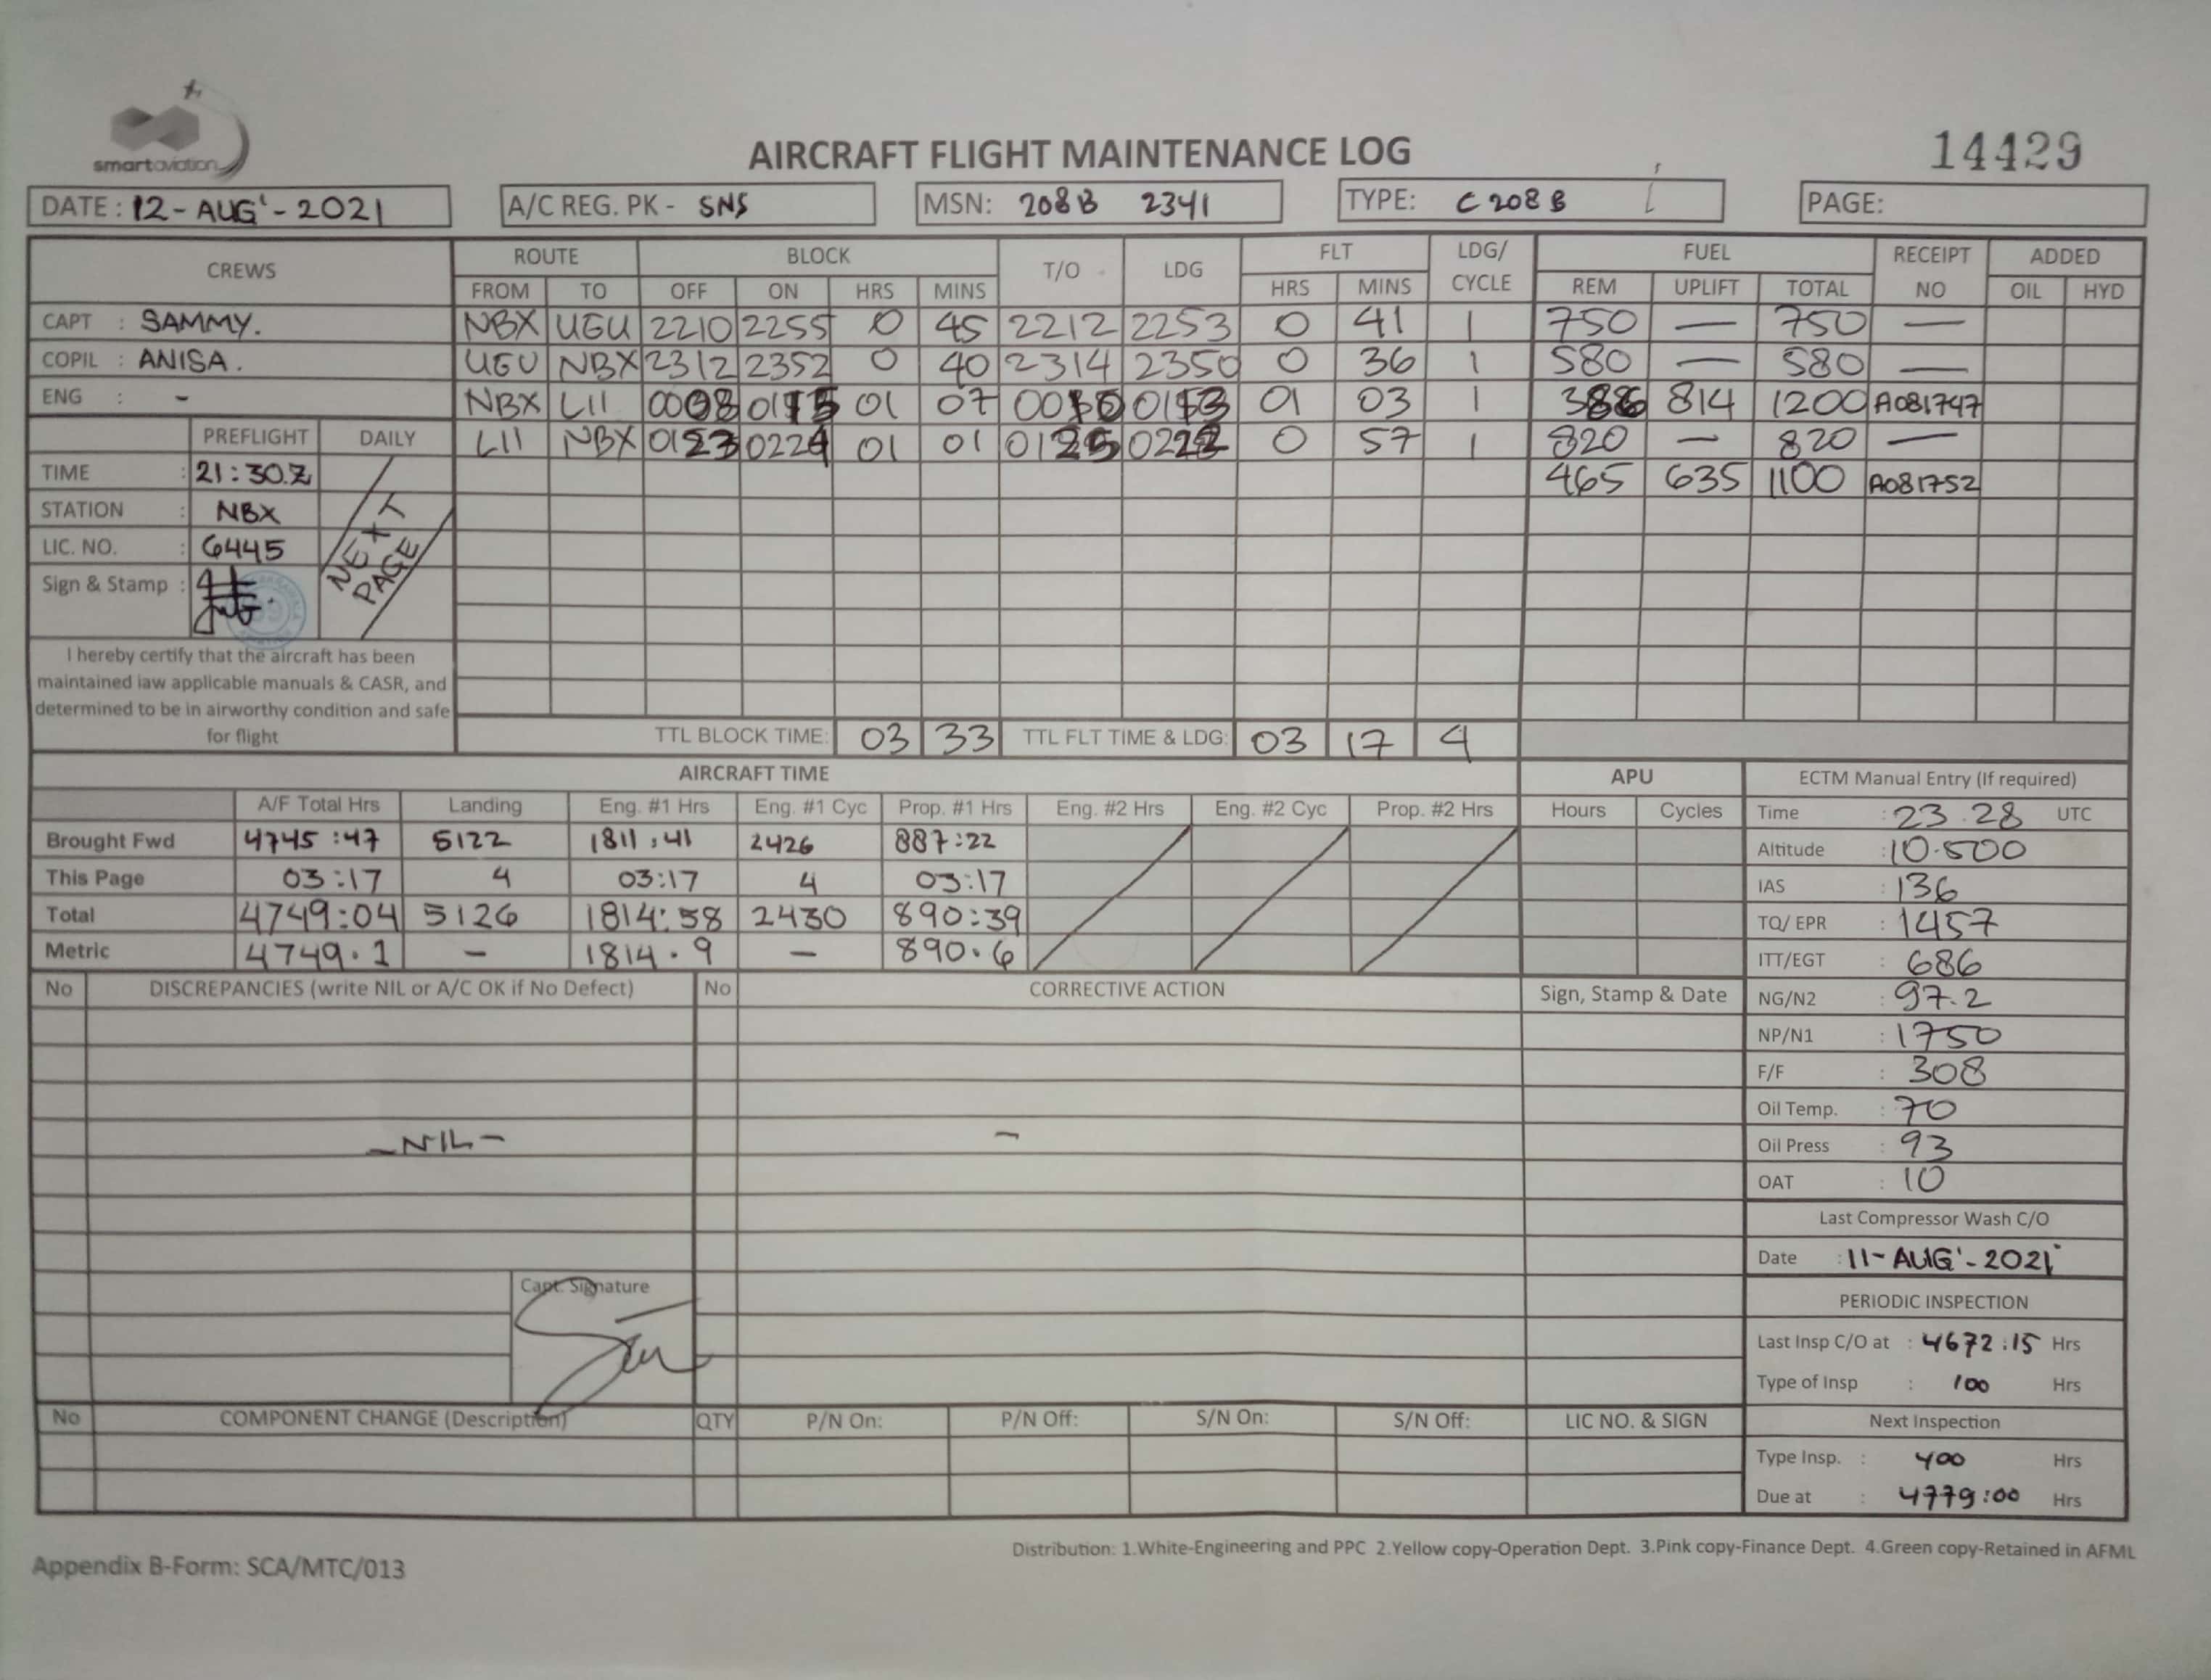 smartaviation
AIRCRAFT FLIGHT MAINTENANCE LOG
14429
DATE : 12-AUG'-2021 A/C REG. PK - SNS MSN: 208B 2341 TYPE: C208B PAGE:
CREWS ROUTE BLOCK T/O LDG FLT LDG/ CYCLE FUEL RECEIPT NO ADDED
FROM TO OFF ON HRS MINS HRS MINS REM UPLIFT TOTAL OIL HYD
CAPT : SAMMY. NBX UGU 2210 2255 0 45 2212 2253 0 41 1 750 — 750 —
COPIL : ANISA. UGU NBX 2312 2352 0 40 2314 2350 0 36 1 580 — 580 —
ENG : - NBX LII 0008 0115 01 07 0010 0113 01 03 1 386 814 1200 A081747
PREFLIGHT DAILY LII NBX 0123 0224 01 01 0125 0222 0 57 1 820 — 820 —
TIME : 21:30.Z 465 635 1100 A081752
STATION : NBX
LIC. NO. : 6445
NEXT PAGE
Sign & Stamp :
I hereby certify that the aircraft has been
maintained iaw applicable manuals & CASR, and
determined to be in airworthy condition and safe
for flight
TTL BLOCK TIME: 03 33 TTL FLT TIME & LDG: 03 17 4
AIRCRAFT TIME APU ECTM Manual Entry (If required)
A/F Total Hrs Landing Eng. #1 Hrs Eng. #1 Cyc Prop. #1 Hrs Eng. #2 Hrs Eng. #2 Cyc Prop. #2 Hrs Hours Cycles Time : 23.28 UTC
Brought Fwd 4745:47 5122 1811:41 2426 887:22 Altitude : 10.500
This Page 03:17 4 03:17 4 03:17 IAS : 136
Total 4749:04 5126 1814:58 2430 890:39 TQ/ EPR : 1457
Metric 4749.1 - 1814.9 - 890.6 ITT/EGT : 686
No DISCREPANCIES (write NIL or A/C OK if No Defect) No CORRECTIVE ACTION Sign, Stamp & Date NG/N2 : 97.2
NP/N1 : 1750
F/F : 308
Oil Temp. : 70
-NIL- - Oil Press : 93
OAT : 10
Last Compressor Wash C/O
Date : 11-AUG'-2021
Capt. Signature
PERIODIC INSPECTION
Last Insp C/O at : 4672:15 Hrs
Type of Insp : 100 Hrs
No COMPONENT CHANGE (Description) QTY P/N On: P/N Off: S/N On: S/N Off: LIC NO. & SIGN Next Inspection
Type Insp. : 400 Hrs
Due at : 4779:00 Hrs
Distribution: 1.White-Engineering and PPC 2.Yellow copy-Operation Dept. 3.Pink copy-Finance Dept. 4.Green copy-Retained in AFML
Appendix B-Form: SCA/MTC/013